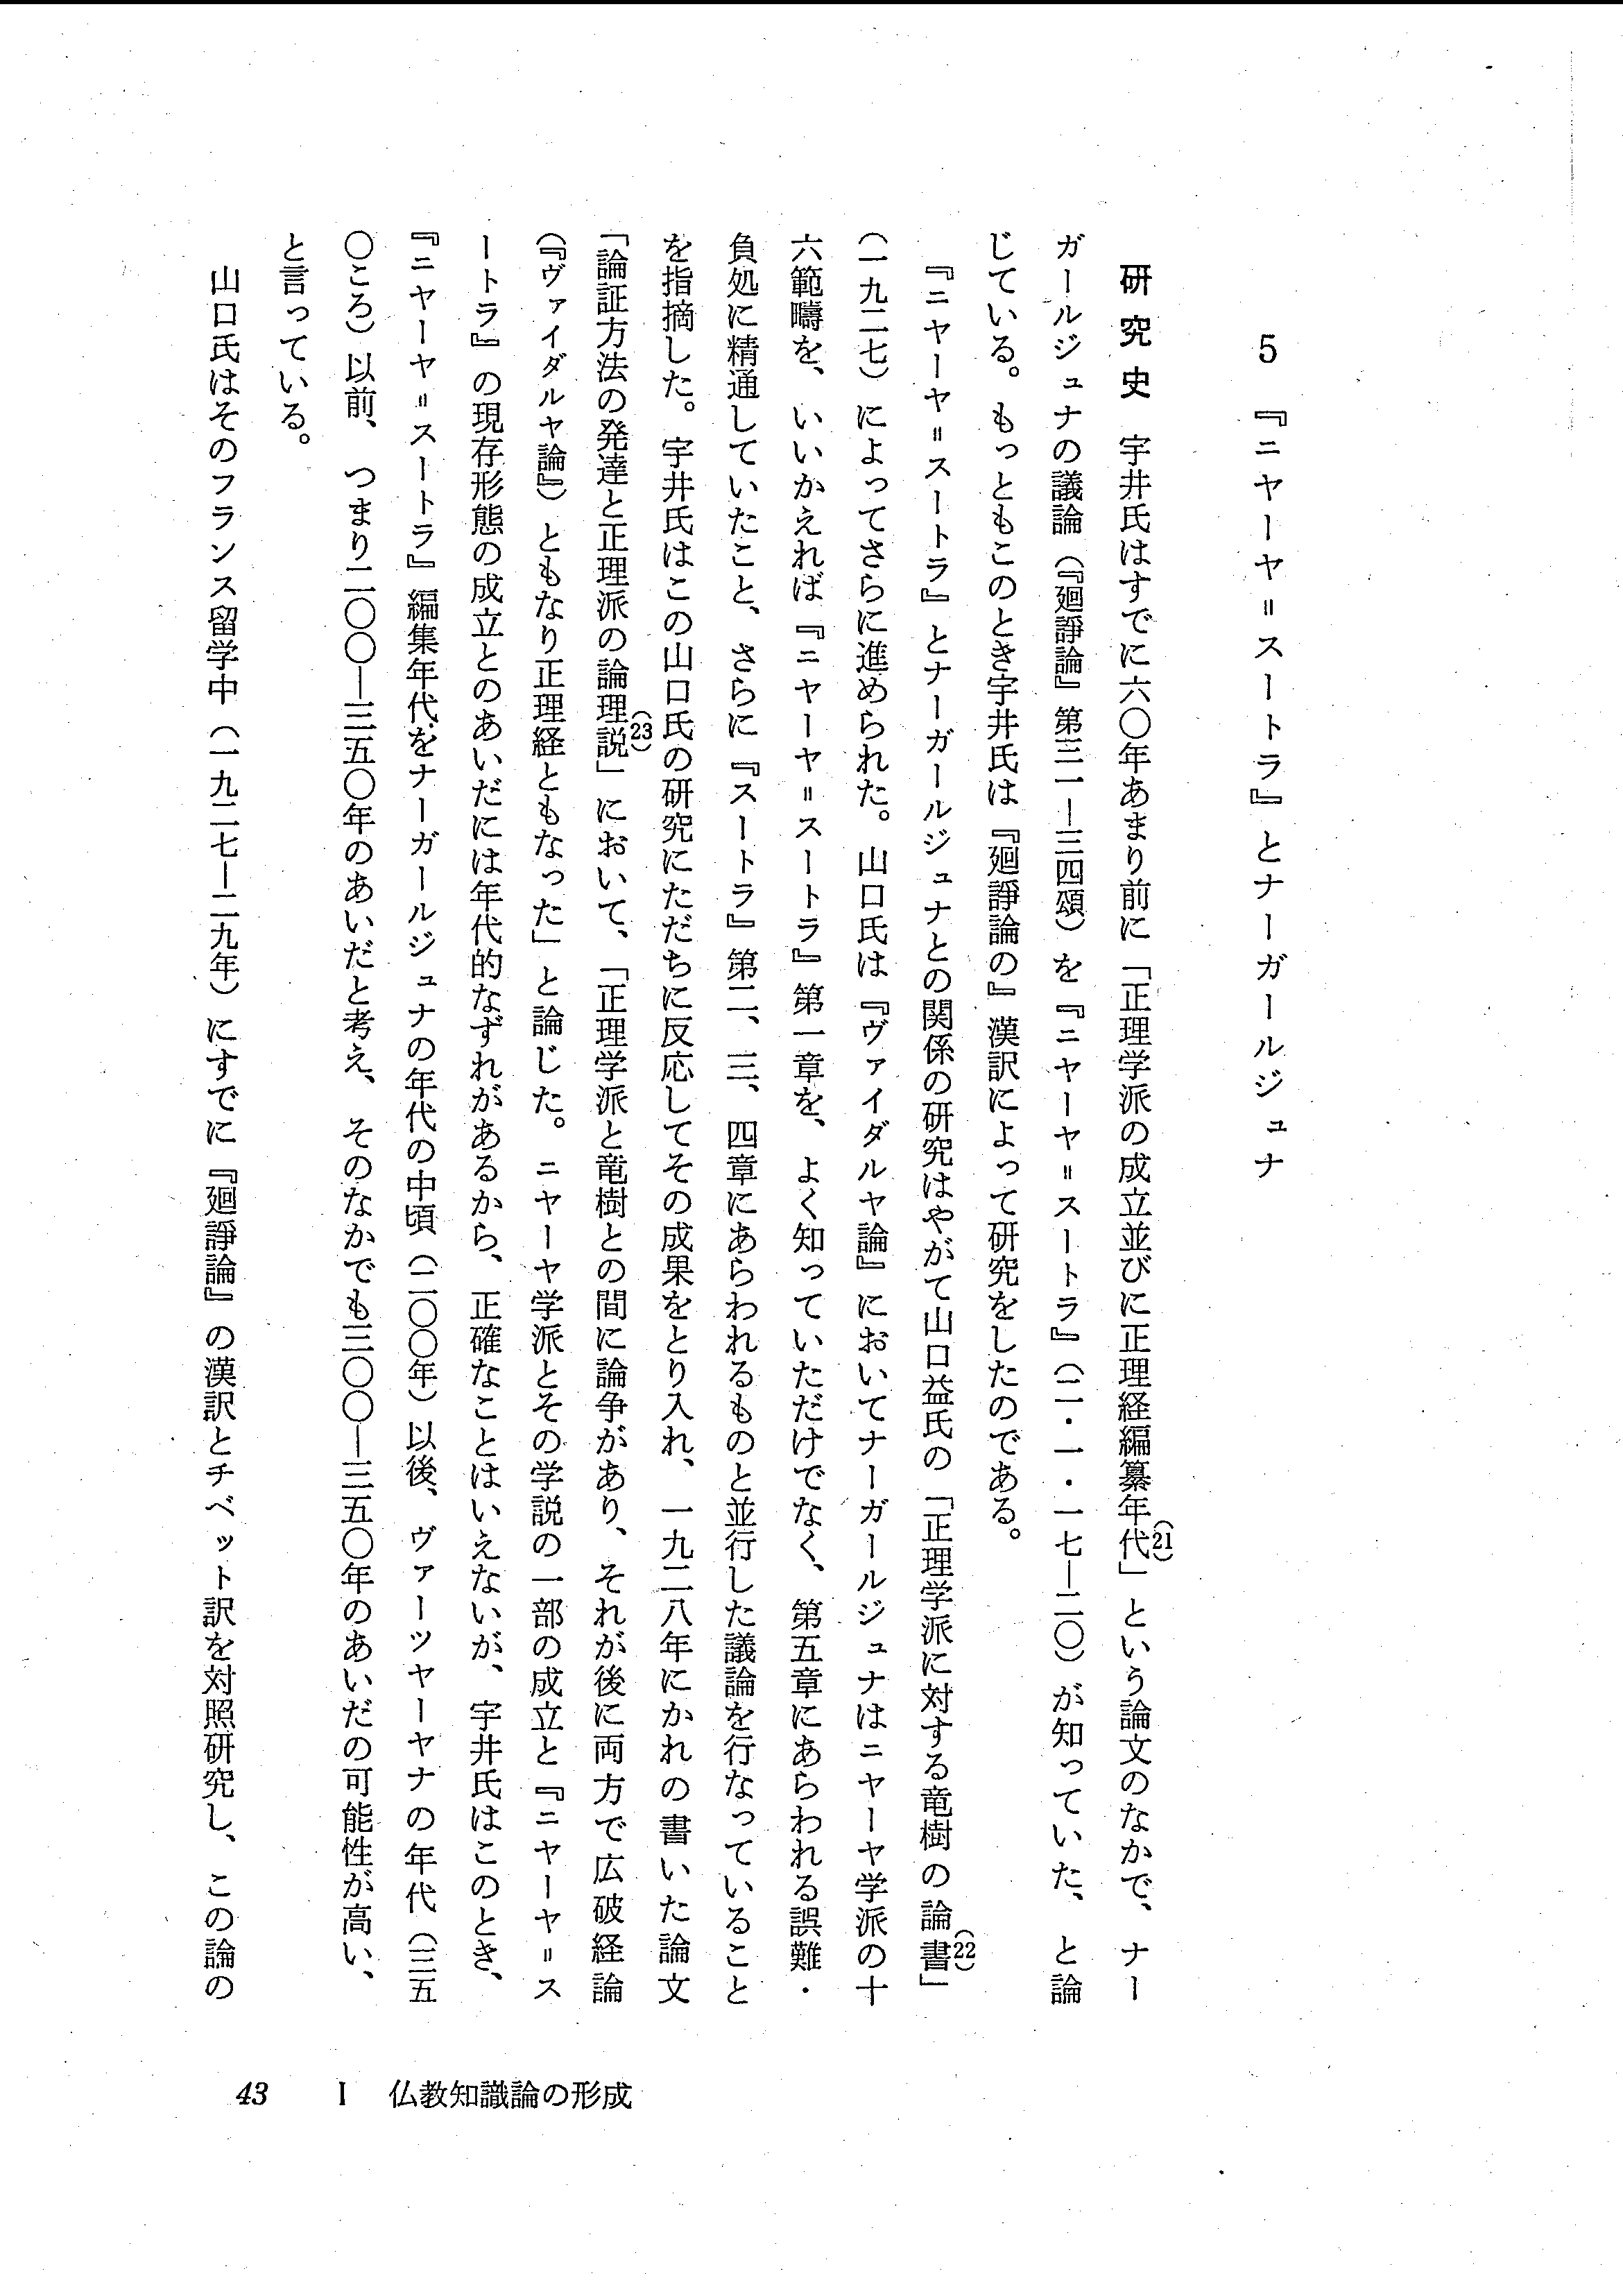 5　『ニヤーヤ＝スートラ』とナーガールジュナ
研究史　宇井氏はすでに六〇年あまり前に「正理学派の成立並びに正理経編纂年代(21)」という論文のなかで、ナー
ガールジュナの議論（『廻諍論』第三一―三四頌）を『ニヤーヤ＝スートラ』（二・一・一七―二〇）が知っていた、と論
じている。もっともこのとき宇井氏は『廻諍論の』漢訳によって研究をしたのである。
『ニヤーヤ＝スートラ』とナーガールジュナとの関係の研究はやがて山口益氏の「正理学派に対する竜樹の論書(22)」
（一九二七）によってさらに進められた。山口氏は『ヴァイダルヤ論』においてナーガールジュナはニヤーヤ学派の十
六範疇を、いいかえれば『ニヤーヤ＝スートラ』第一章を、よく知っていただけでなく、第五章にあらわれる誤難・
負処に精通していたこと、さらに『スートラ』第二、三、四章にあらわれるものと並行した議論を行なっていること
を指摘した。宇井氏はこの山口氏の研究にただちに反応してその成果をとり入れ、一九二八年にかれの書いた論文
「論証方法の発達と正理派の論理説(23)」において、「正理学派と竜樹との間に論争があり、それが後に両方で広破経論
（『ヴァイダルヤ論』）ともなり正理経ともなった」と論じた。ニヤーヤ学派とその学説の一部の成立と『ニヤーヤ＝ス
ートラ』の現存形態の成立とのあいだには年代的なずれがあるから、正確なことはいえないが、宇井氏はこのとき、
『ニヤーヤ＝スートラ』編集年代をナーガールジュナの年代の中頃（二〇〇年）以後、ヴァーツヤーヤナの年代（三五
〇ころ）以前、つまり二〇〇―三五〇年のあいだと考え、そのなかでも三〇〇―三五〇年のあいだの可能性が高い、
と言っている。
山口氏はそのフランス留学中（一九二七―二九年）にすでに『廻諍論』の漢訳とチベット訳を対照研究し、この論の
43　I　仏教知識論の形成